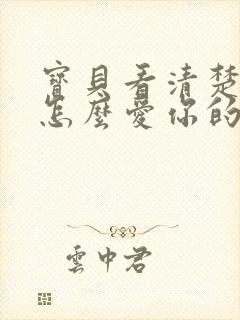 寶貝看清楚
怎麼愛你的
雲中君